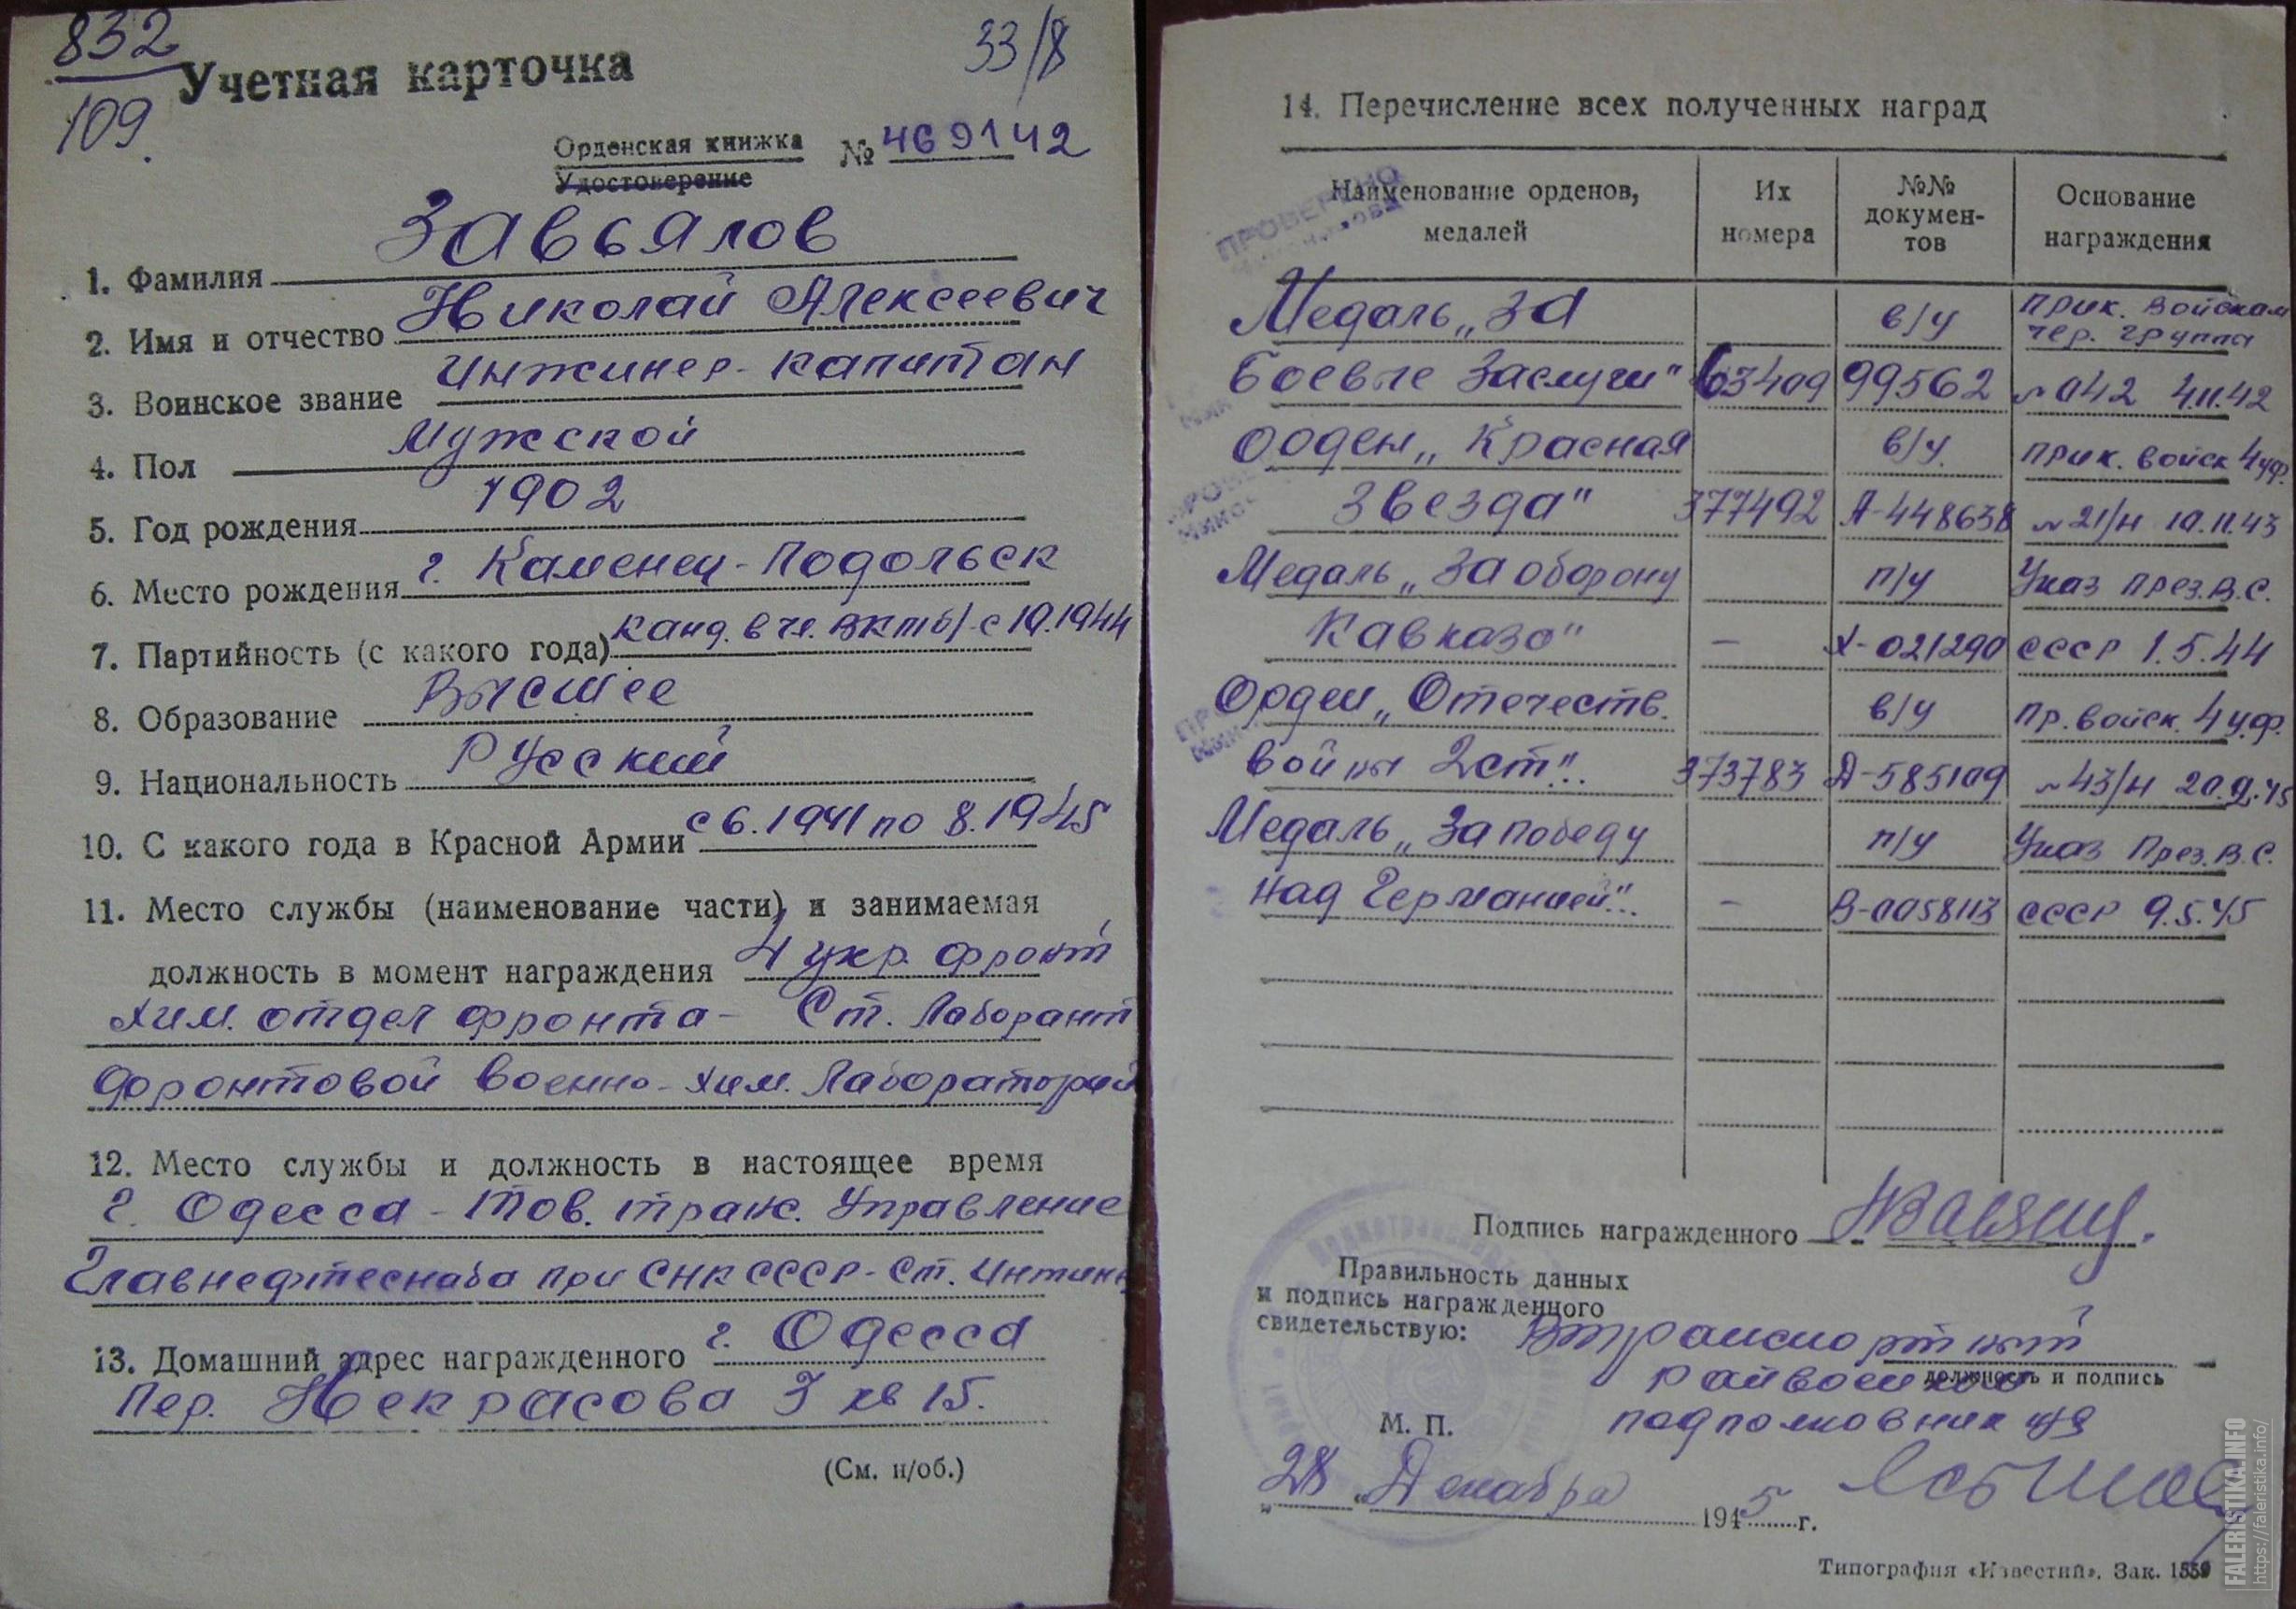 832
109.
33/8
Учетная карточка
Орденская книжка
Удостоверение
№ 469142
1. Фамилия Завьялов
2. Имя и отчество Николай Алексеевич
3. Воинское звание Инжинер-капитан
4. Пол Мужской
5. Год рождения 1902
6. Место рождения г. Каменец-Подольск
7. Партийность (с какого года) канд. в чл. ВКП(б) с 10.1944
8. Образование Высшее
9. Национальность Русский
10. С какого года в Красной Армии с 6.1941 по 8.1945
11. Место службы (наименование части) и занимаемая
должность в момент награждения 4 укр. фронт
Хим. отдел фронта - Ст. Лаборант
фронтовой военно-хим. Лаборатории
12. Место службы и должность в настоящее время
г. Одесса - Тов. транс. Управление
Главнефтеснаба при СНК СССР - Ст.
13. Домашний адрес награжденного г. Одесса
пер. Некрасова 7 кв 15.
(См. н/об.)
14. Перечисление всех полученных наград
ПРОВЕРЕНО
Наименование орденов, медалей Их номера №№ докумен-тов Основание награждения
Медаль „За в/у Прик. Войскам чер. группа
Боевые Заслуги" 63409 99562 № 042 4.11.42
Орден „Красная в/у. прик. войск 4 уф.
Звезда" 377492 А-448638 № 21/н 10.11.43
Медаль „За оборону п/у Указ През. В.С.
Кавказа" - Х-021290 СССР 1.5.44
Орден „Отечеств. в/у Пр. войск. 4 у.ф.
войны 2 ст". 373783 Д-585109 № 43/н 20.9.45
Медаль „За победу п/у Указ През. В.С.
над Германией". - В-0058113 СССР 9.5.45
Подпись награжденного
Правильность данных
и подпись награжденного
свидетельствую:
Втранспортный
райвоенком
должность и подпись
М. П.
подполковник
„28" Декабря 1945 г.
Типография «Известий». Зак. 1559
FALERISTIKA.INFO
https://faleristika.info/